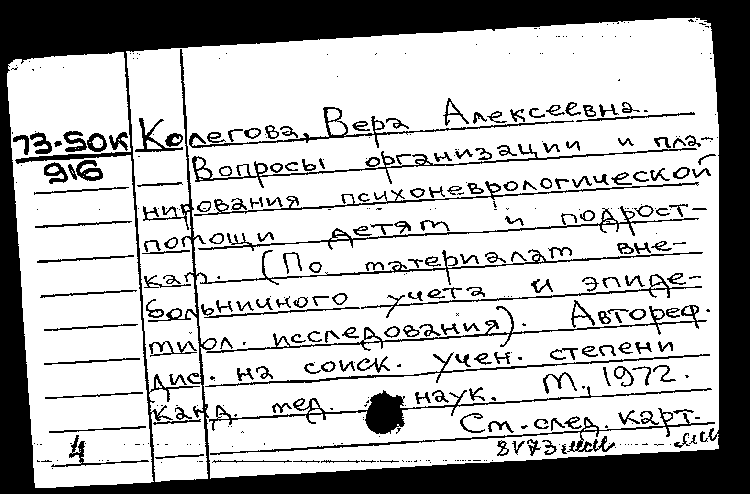 Колегова, Вера Алексеевна.
73-50К
916
Вопросы организации и пла-
нирования психоневрологической
помощи детям и подрост-
кам. (По материалам вне-
больничного учета и эпиде-
миол. исследования). Автореф.
дис. на соиск. учен. степени
канд. мед. наук. М., 1972.
См. след. карт.
4